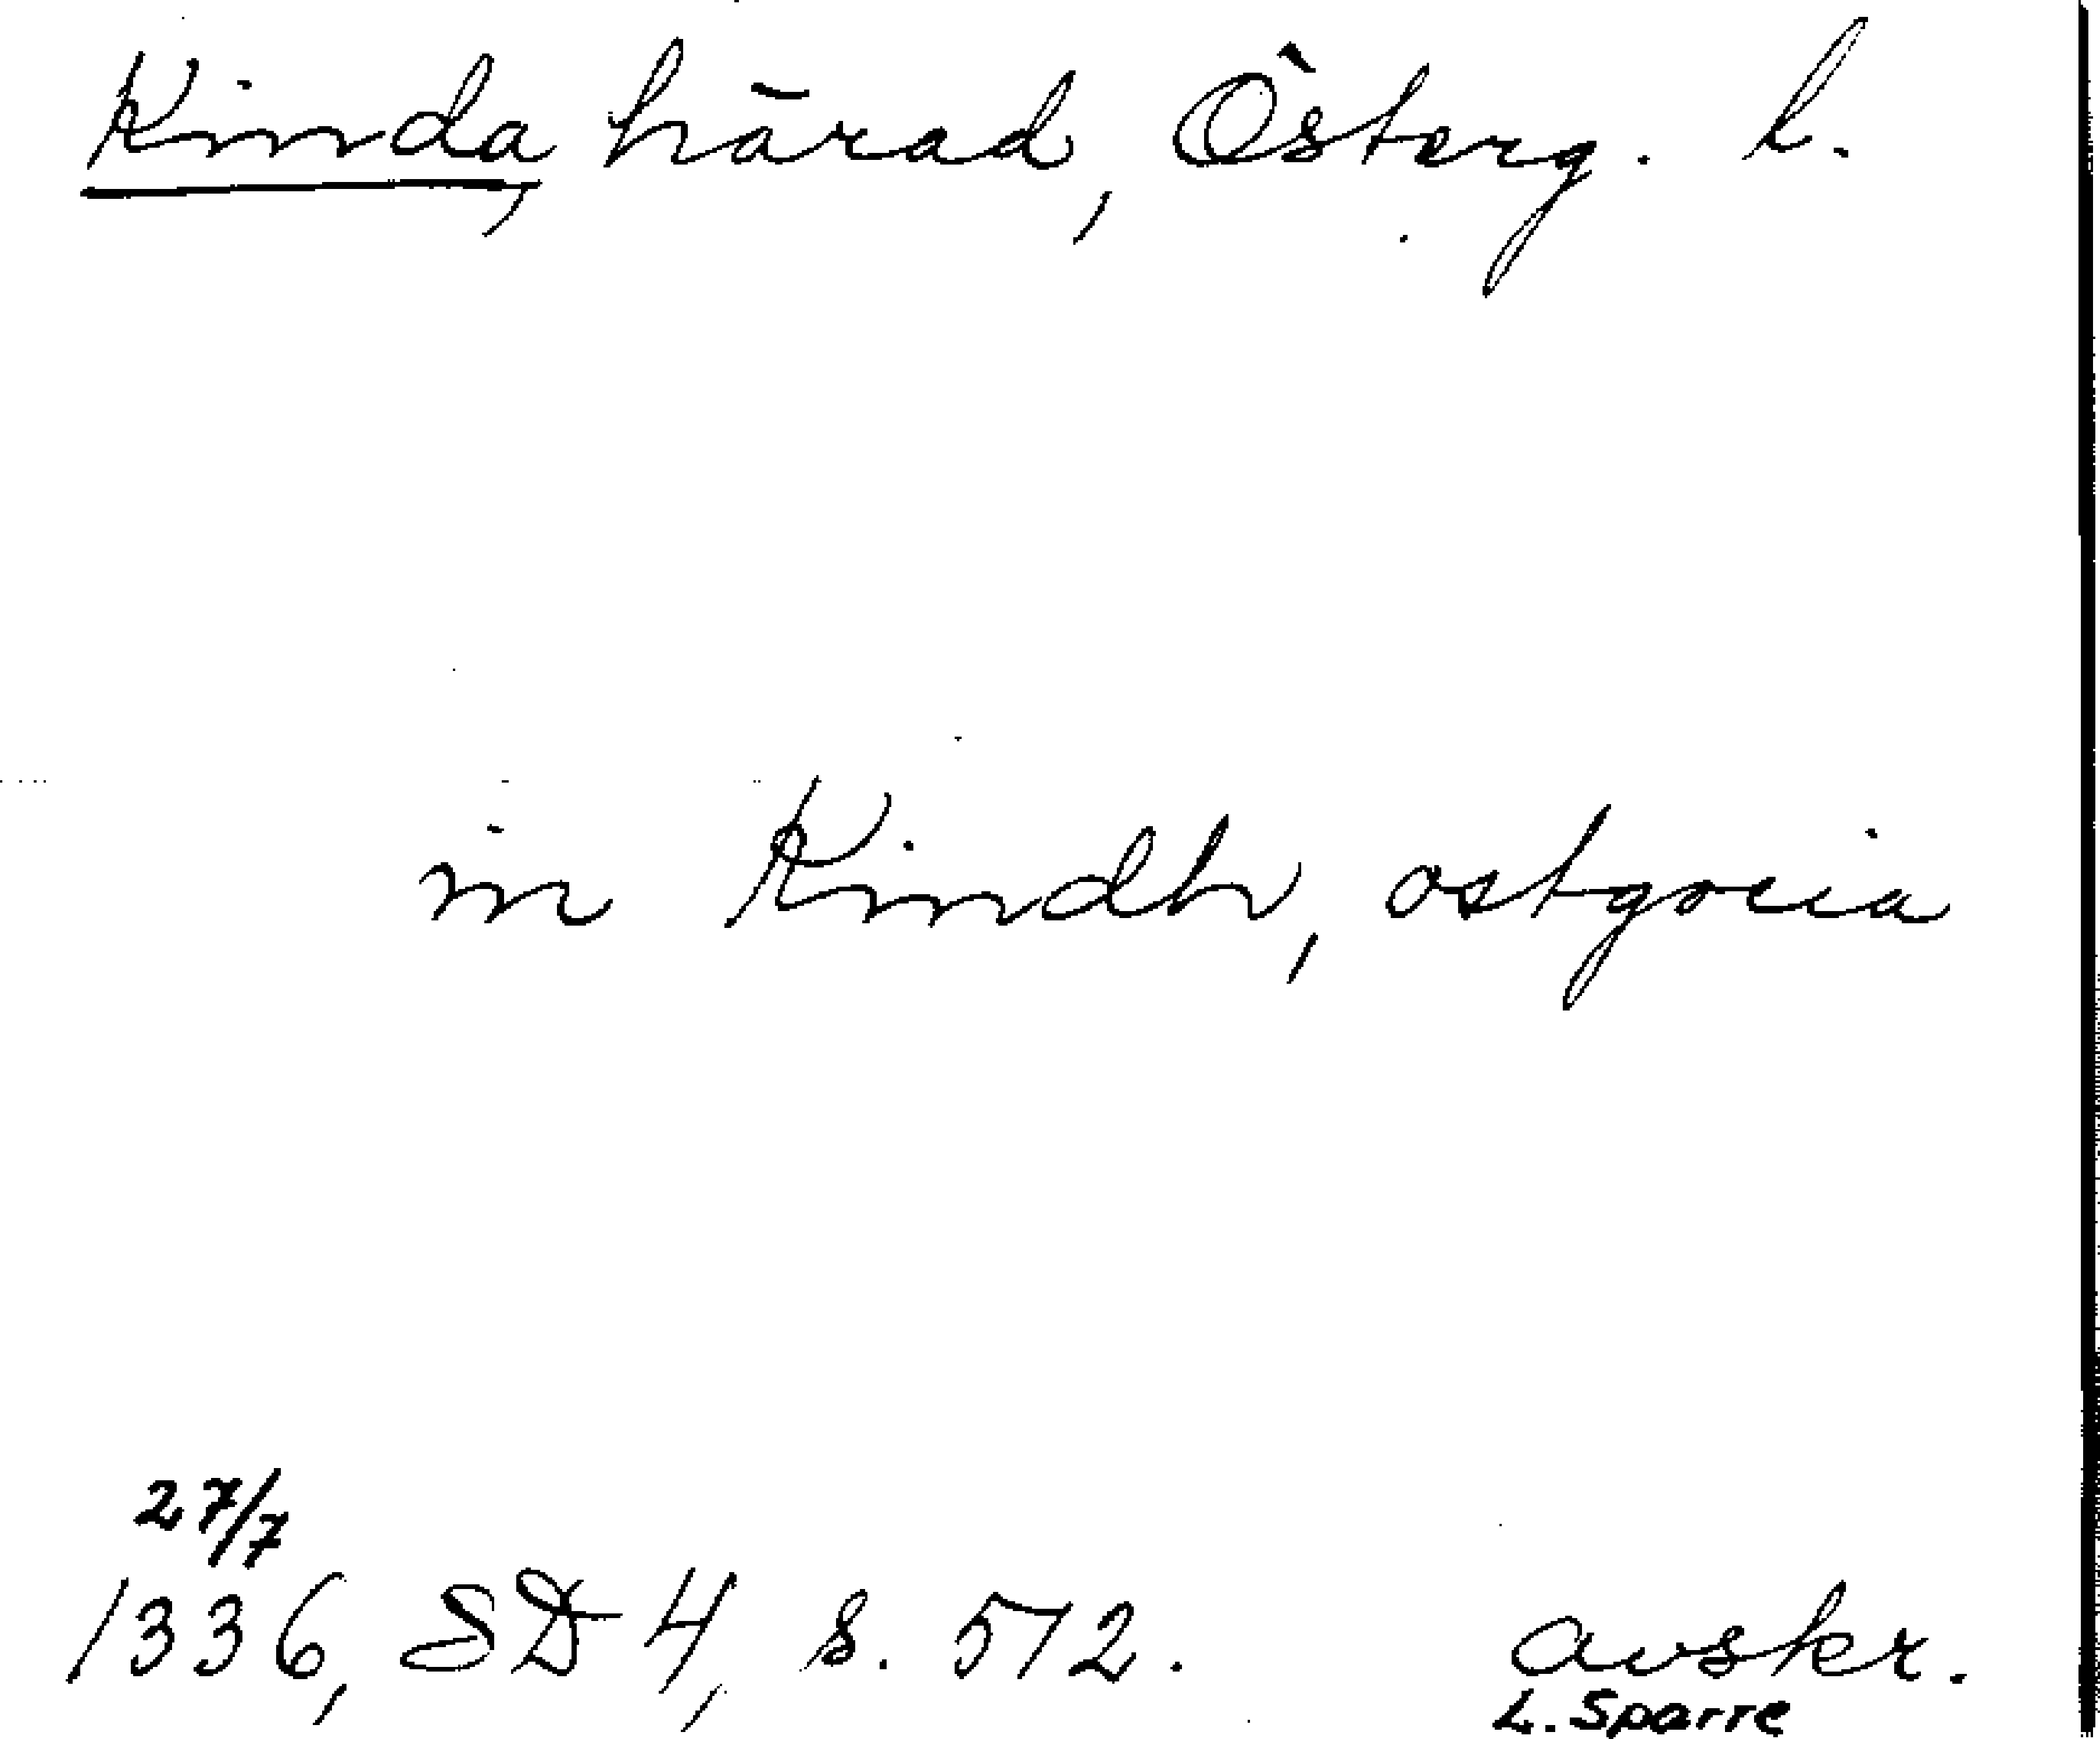 Kinda, härad, Österg. l.
in Kindh, ostgocia
27/7
1336, SD 4, s. 572.
avskr.
L. Sparre